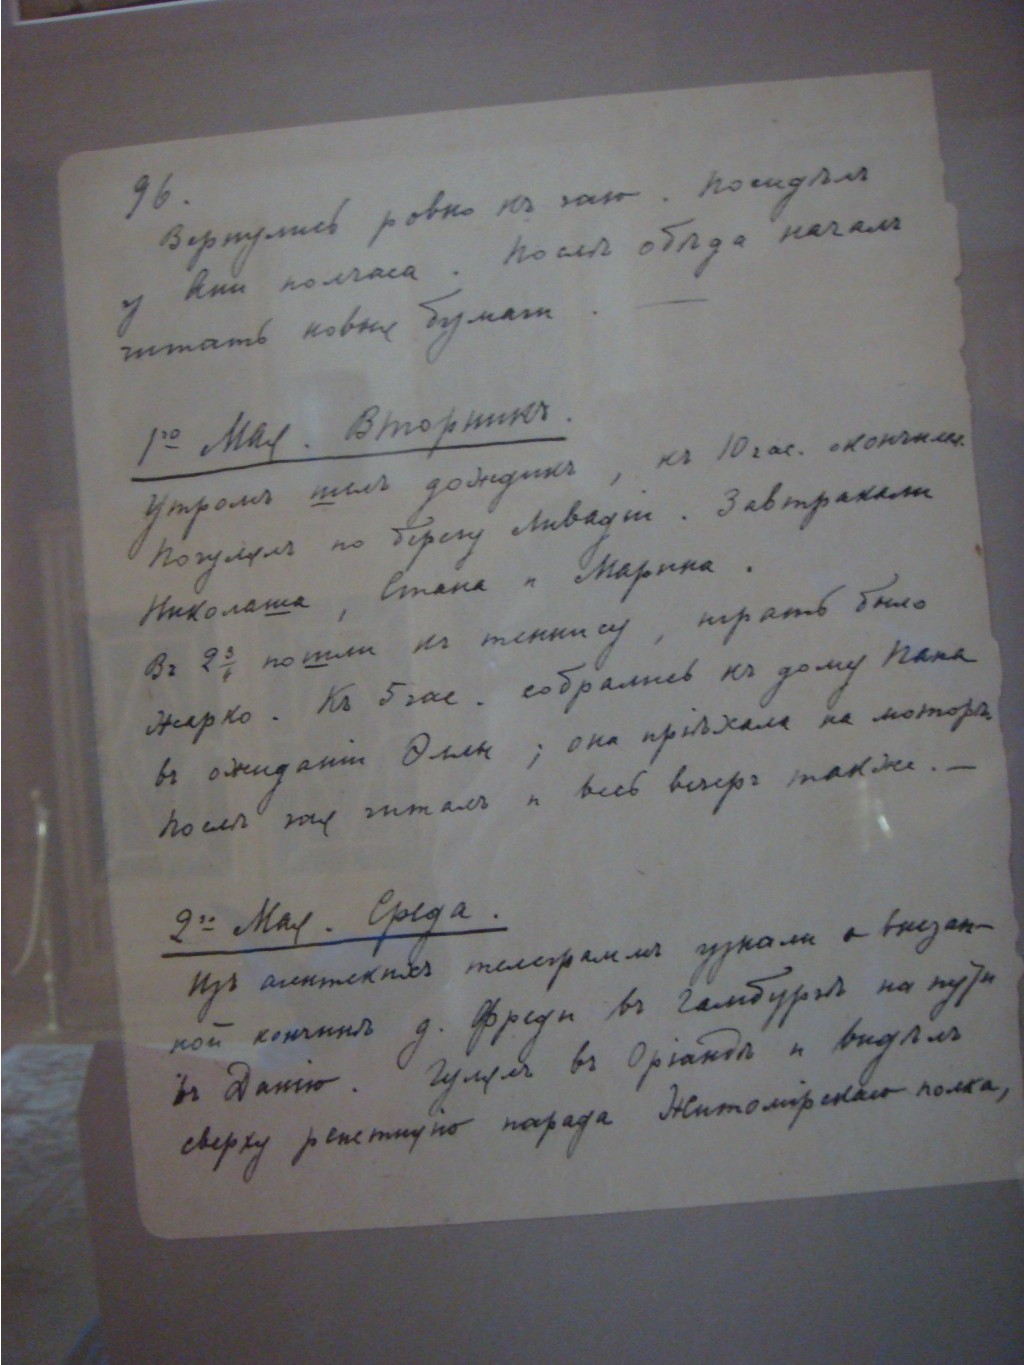 96.
Вернулись ровно къ чаю. Посидѣлъ
у Ани полчаса. Послѣ обѣда началъ
читать новыя бумаги. —
1го Мая. Вторникъ.
Утромъ шелъ дождикъ, къ 10 час. окончился.
Погулялъ по берегу Ливадіи. Завтракали
Николаша, Стана и Марина.
Въ 2¾ пошли къ теннису, играть было
жарко. Къ 5 час. собрались къ дому Папа
въ ожиданіи Эллы; она пріѣхала на моторѣ.
Послѣ чая читалъ и весь вечеръ также. —
2го Мая. Среда.
Изъ агентскихъ телеграммъ узнали о внезап-
ной кончинѣ д. Фреди въ Гамбургѣ на пути
въ Данію. Гулялъ въ Оріандѣ и видѣлъ
сверху репетицію парада Житомірскаго полка,